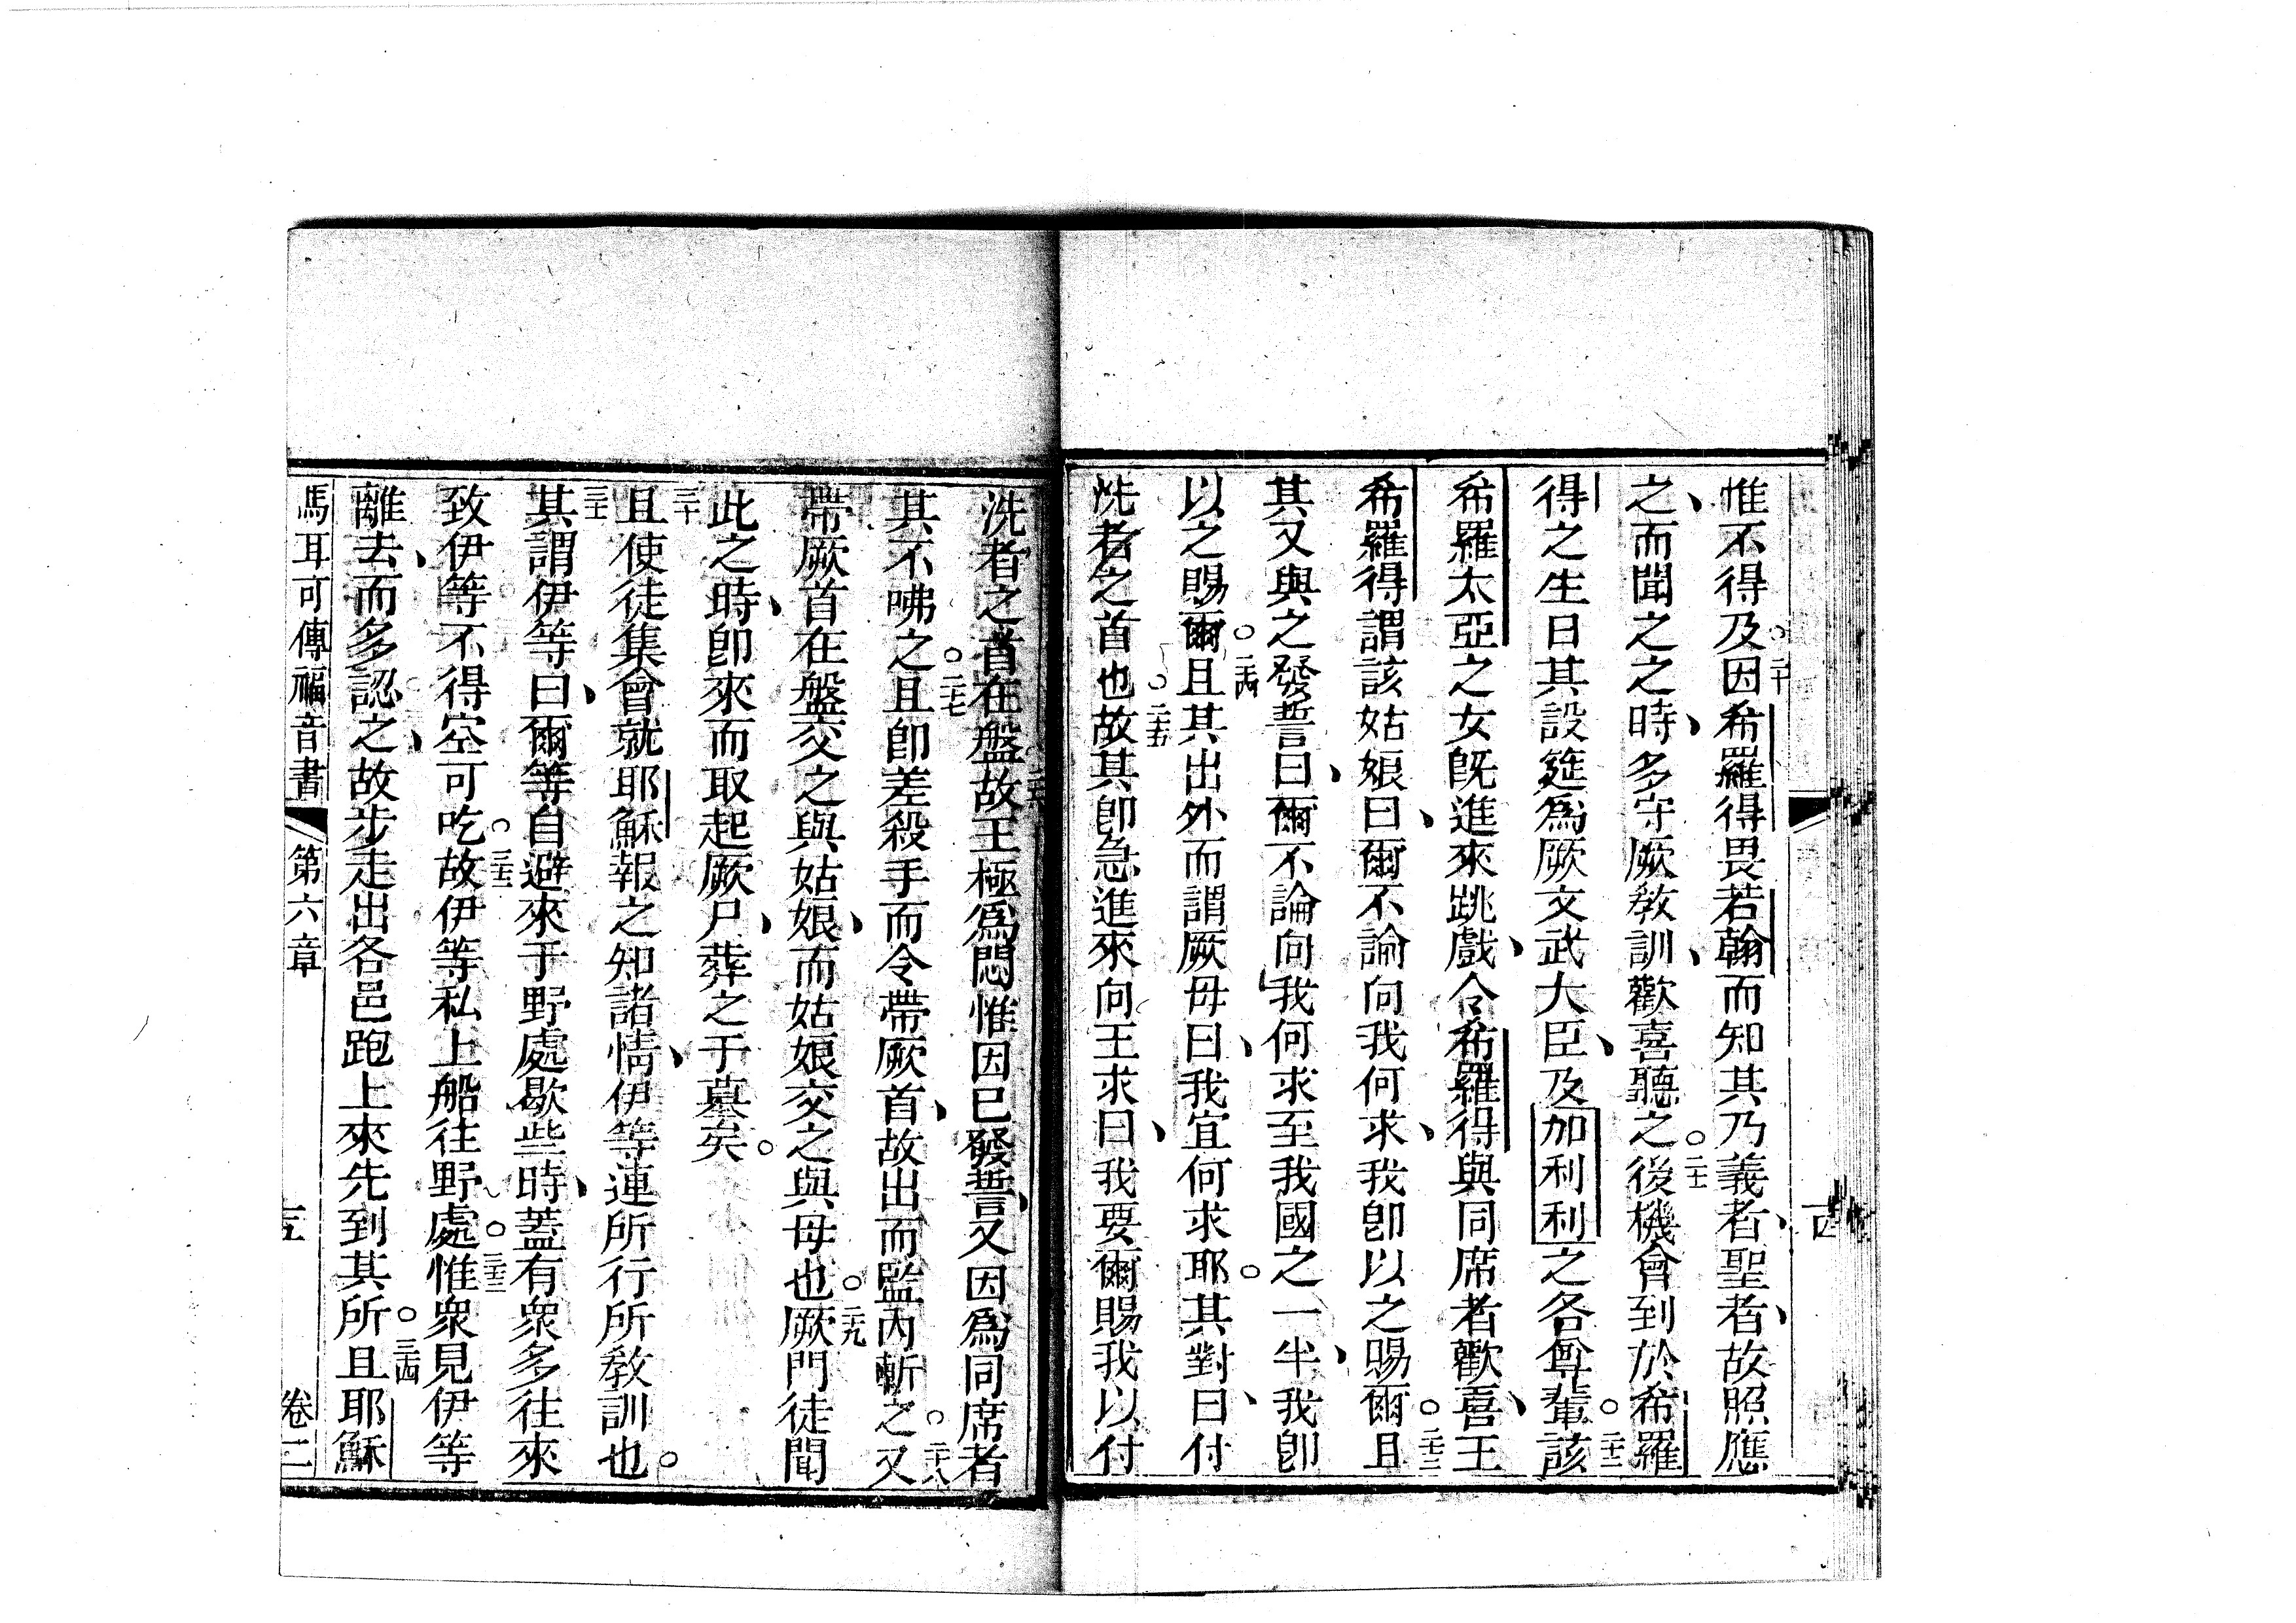 惟不得及。二十因希羅得畏若翰而知其乃義者、聖者、故照應
之、而聞之之時、多守厥教訓、歡喜聽之。二十一後機會到於希羅
得之生日其設筵爲厥文武大臣、及加利利之各尊輩。二十二該
希羅太亞之女旣進來跳戲、令希羅得與同席者歡喜、王
希羅得謂該姑娘曰、爾不論向我何求、我卽以之賜爾。二十三且
其又與之發誓曰、爾不論向我何求至我國之一半、我卽
以之賜爾。二十四且其出外而謂厥母曰、我宜何求耶。其對曰、付
洗者之首也。二十五故其卽急進來向王求曰、我要爾賜我以付
洗者之首在盤。二十六故王極爲悶惟因已發誓、又因爲同席者
其不咈之。二十七且卽差殺手而令帶厥首、故出而監內斬之。二十八又
帶厥首在盤交之與姑娘、而姑娘交之與母也。二十九厥門徒聞
此之時、卽來而取起厥尸、葬之于墓矣。
三十且使徒集會就耶穌報之知諸情、伊等連所行所教訓也。
三十一其謂伊等曰、爾等自避來于野處歇些時、蓋有衆多往來
致伊等不得空可吃。三十二故伊等私上船往野處。三十三惟衆見伊等
離去、而多認之、故步走出各邑跑上來先到其所。三十四且耶穌
馬耳可傳福音書 第六章 卷二